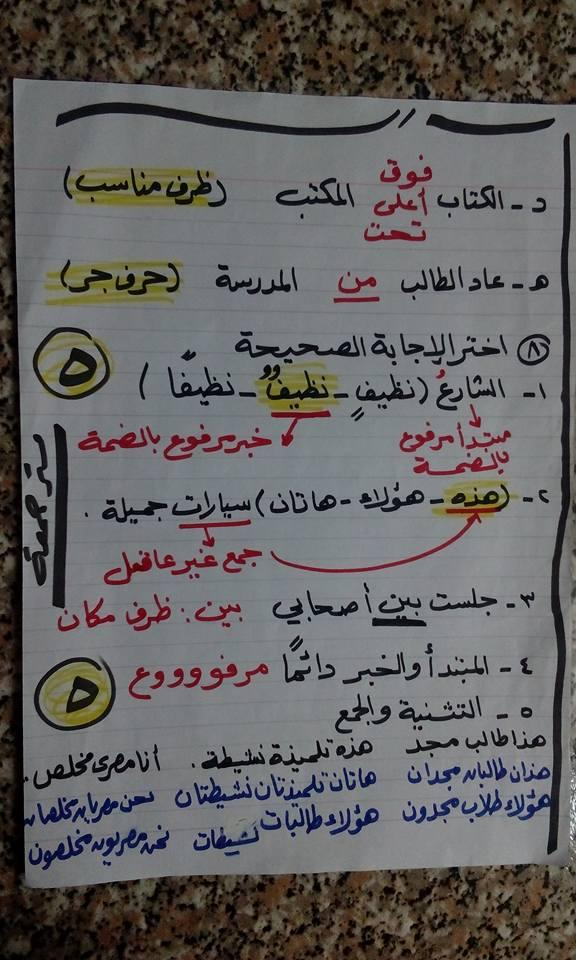 فوق
د - الكتاب أعلى المكتب (ظرف مناسب)
تحت
هـ - عاد الطالب من المدرسة (حرف جر)
٨ اختر الإجابة الصحيحة ٥
١- الشارعُ (نظيفٍ - نظيفٌ - نظيفًا)
مبتدأ مرفوع بالضمة خبر مرفوع بالضمة
٢- (هذه - هؤلاء - هاتان) سيارات جميلة .
جمع غير عاقل
٣- جلست بين أصحابي بين : ظرف مكان
٤- المبتدأ والخبر دائمًا مرفوووووع ٥
٥- التثنية والجمع
هذا طالب مجد هذه تلميذة نشيطة . أنا مصرى مخلص .
هذان طالبان مجدان هاتان تلميذتان نشيطتان نحن مصريان مخلصان
هؤلاء طلاب مجدون هؤلاء طالبات نشيطات نحن مصريون مخلصون